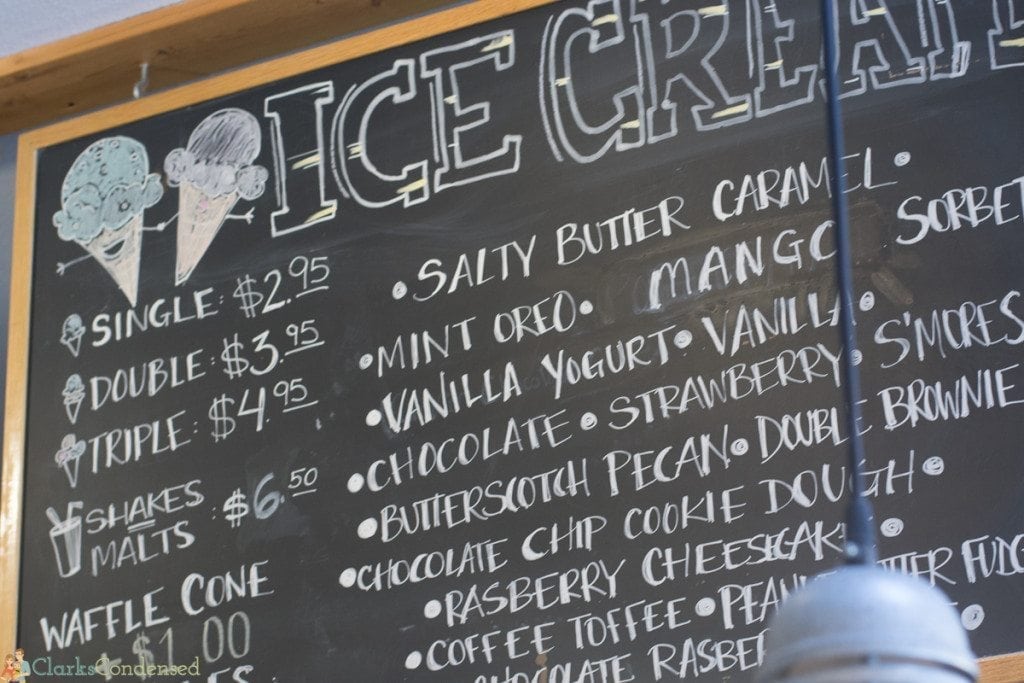 ICE CREA
SINGLE: $2.95
DOUBLE: $3.95
TRIPLE: $4.95
SHAKES
MALTS $6.50
WAFFLE CONE
+$1.00
• SALTY BUTTER CARAMEL •
• MINT OREO • MANGO SORBET
• VANILLA YOGURT • VANILLA •
• CHOCOLATE • STRAWBERRY • S'MORES
• BUTTERSCOTCH PECAN • DOUBLE BROWNIE
• CHOCOLATE CHIP COOKIE DOUGH •
• RASBERRY CHEESECAKE •
• COFFEE TOFFEE • PEANUT BUTTER FUDG
CHOCOLATE RASBER
ClarksCondensed